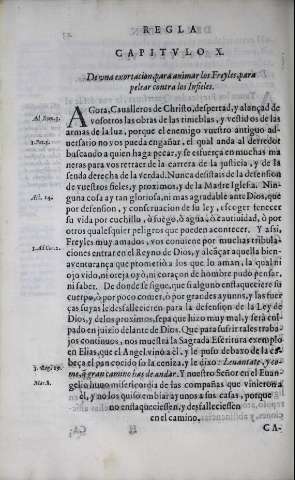 REGLA
CAPITVLO X.
De vna exortacion, para animar los Freyles, para
pelear contra los Infieles.
AGora, Caualleros de Christo, despertad, y alançad de
Ad Rom. 3.
vosotros las obras de las tinieblas, y vestidos de las
armas de la luz, porque el enemigo vuestro antiguo ad-
uersario no vos pueda engañar, el qual anda al derredor
buscando a quien haga pecar, y se esfuerça en muchas ma
neras para vos retraer de la carrera de la justicia, y de la
senda derecha de la verdad. Nunca desistais de la defension
de vuestros fieles, y proximos, y de la Madre Iglesia. Nin-
guna cosa ay tan gloriosa, ni mas agradable ante Dios, que
por defension, y conseruacion de su ley, escoger fenecer
su vida por cuchillo, ò fuego, ò agua, ò cautiuidad, ò por
otros qualesquier peligros que pueden acontecer. Y assi,
Freyles muy amados, vos conuiene por muchas tribula-
ciones entrar en el Reyno de Dios, y alcãçar aquella bien-
auenturança que prometio a los que lo aman, la qual ni
ojo vido, ni oreja oyò, ni coraçon de hombre pudo pensar,
ni saber. De donde se sigue, que si alguno enflaqueciere su
cuerpo, ò por poco comer, ò por grandes ayunos, y las fuer
ças suyas le desfallecieren para la defension de la Ley de
Dios, y de los proximos, sepa que hizo muy mal, y serà cul-
pado en juizio delante de Dios. Que para sufrir tales traba-
jos continuos, nos muestra la Sagrada Escritura exemplo
en Elias, que el Angel vino a èl, y le puso debaxo de la ca-
beça el pan cocido so la ceniza, y le dixo: Leuantate, y co-
me, q̃ gran camino has de andar. Y nuestro Señor en el Euan-
gelio huuo misericordia de las compañas que vinieron a
èl, y no los quiso embiar ayunos a sus casas, porque
no enflaqueciessen, y desfalleciessen
en el camino.
CA-